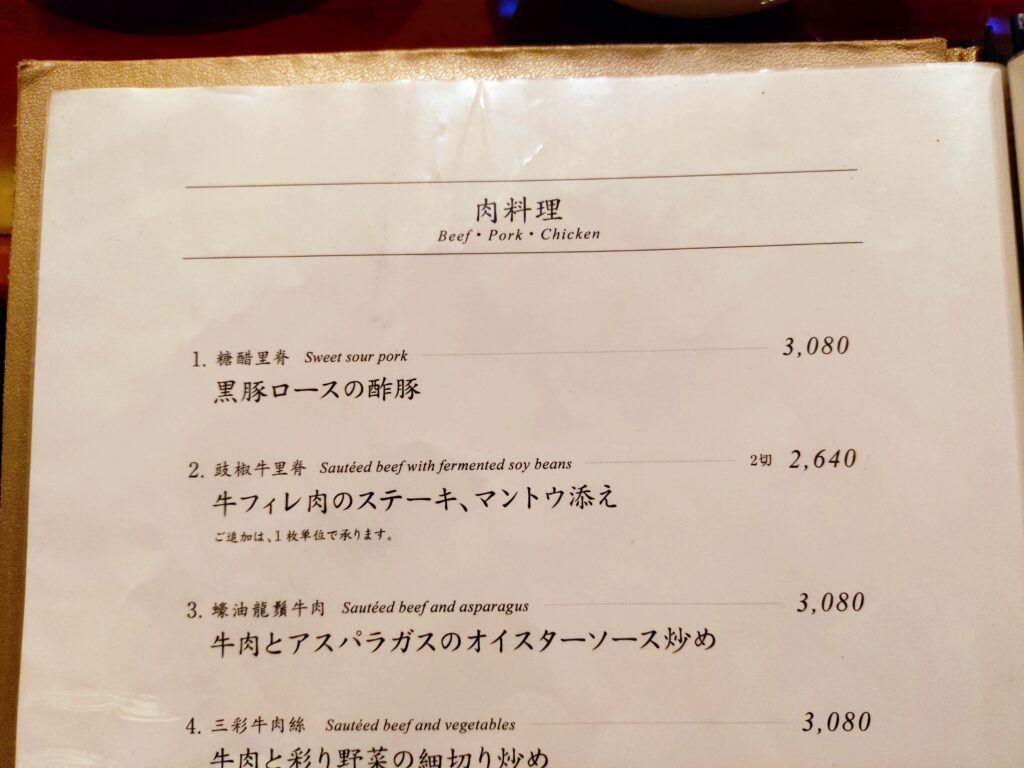 肉料理
Beef・Pork・Chicken
1. 糖醋里脊 Sweet sour pork 3,080
黒豚ロースの酢豚
2. 豉椒牛里脊 Sautéed beef with fermented soy beans 2切 2,640
牛フィレ肉のステーキ、マントウ添え
ご追加は、1枚単位で承ります。
3. 蠔油龍鬚牛肉 Sautéed beef and asparagus 3,080
牛肉とアスパラガスのオイスターソース炒め
4. 三彩牛肉絲 Sautéed beef and vegetables 3,080
牛肉と彩り野菜の細切り炒め